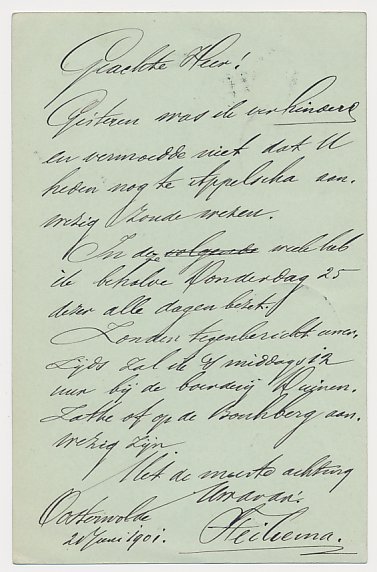 Geachte Heer!
Gisteren was ik verhinderd
en vermoedde niet dat U
heden nog te Appelscha aan-
wezig zoude wezen.
In de volgende week heb
ik behalve Donderdag 25
dezer alle dagen bezet.
Zonder tegenbericht uwer-
zijds zal ik 's middags 12
uur bij de boerderij Duinen-
Zathe of op de Boschberg aan-
wezig zijn
Met de meeste achting
Uw dw. dr.
Oosterwolde
20 Juni 1901.